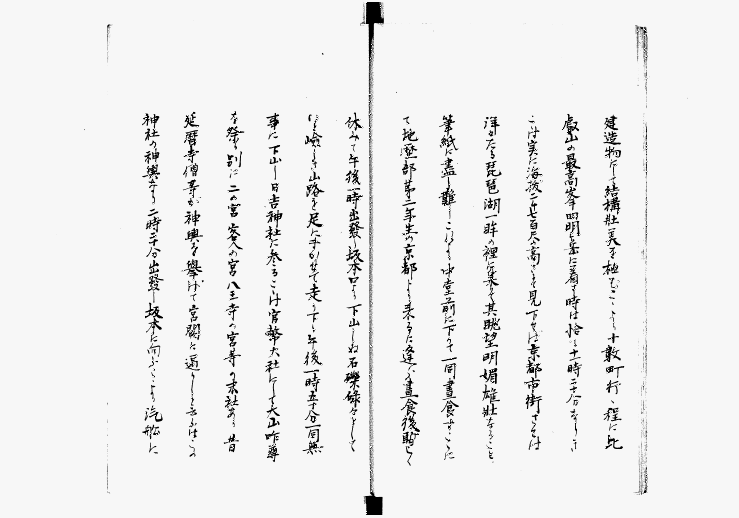 建造物にして結構壮美を極むこゝより十数町行く程に比
叡山の最高峯四明ヶ嶽に着す時は恰も十一時二十分なりき
こは実に海抜二千七百尺の高さにて見下せば京都市街さては
洋々たる琵琶湖一眸の裡に集り其眺望明媚雄壮なること
筆紙に盡し難しこれより中堂前に下りて一同昼食すこゝに
て地歴部第二年生の京都より来るに逢ふ昼食後暫らく
休みて午後一時出発し坂本口より下山しぬ石礫磊々として
嶮しき山路を足にまかせて走り下り午後一時五十分一同無
事に下山し日吉神社に参るこは官幣大社にして大山咋尊
を祭り別に二の宮客人の宮八王寺の宮等の末社あり昔
延暦寺僧等が神輿を挙げて宮闕に逼りしと云ふはこの
神社の神輿なり二時二十分出発し坂本に向ふこゝより汽船に